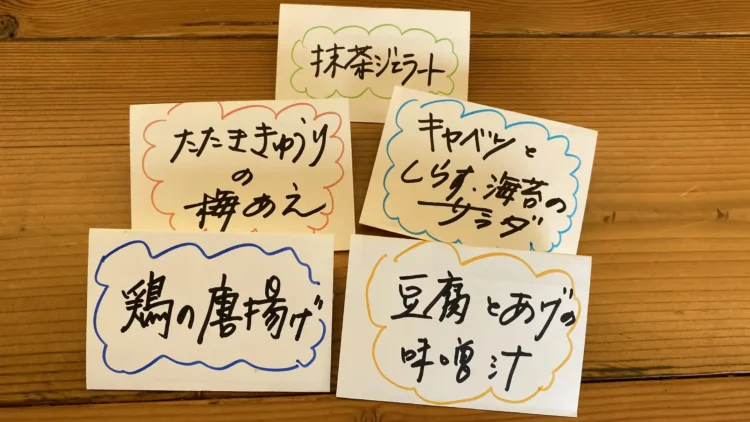 抹茶ジェラート
たたききゅうり
の
梅あえ
キャベツと
しらす、海苔の
サラダ
鶏の唐揚げ
豆腐とあげの
味噌汁